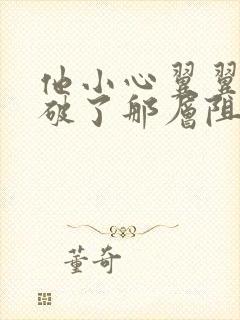 他小心翼翼
破了那层阻
董奇